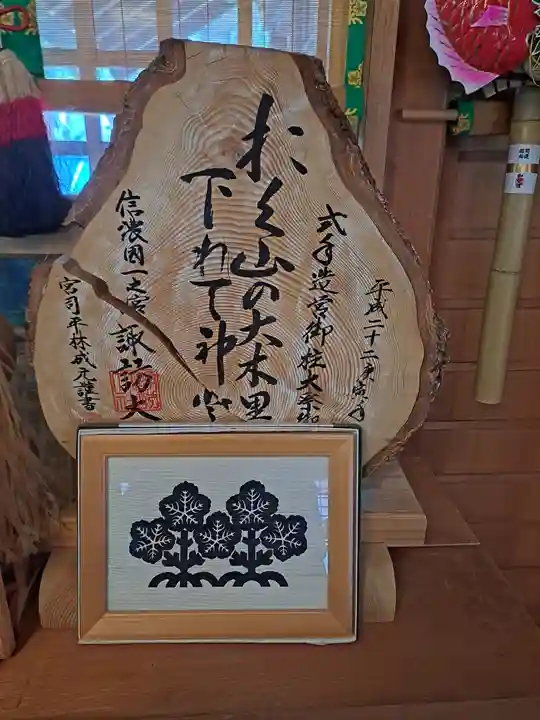 平成二十二庚寅年
式年造営御柱大祭
おく山の大木里
下れて神
信濃國一之宮 諏訪大
宮司平林成元謹書